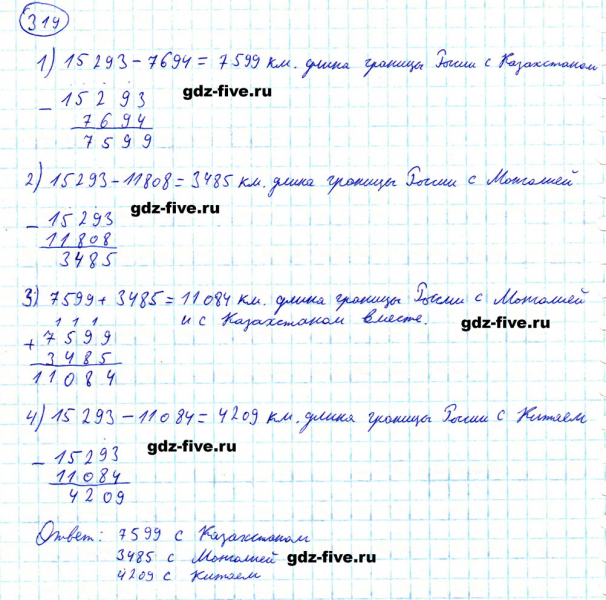 319
1) 15 293 - 7694 = 7599 км. длина границы России с Казахстаном
gdz-five.ru
- 15 293
7694
7599
2) 15293 - 11808 = 3485 км. длина границы России с Монголией
gdz-five.ru
- 15293
11808
3485
3) 7599 + 3485 = 11 084 км. длина границы России с Монголией
и с Казахстаном вместе.
gdz-five.ru
1 1 1
+ 7599
3485
11084
4) 15 293 - 11 084 = 4209 км. длина границы России с Китаем
gdz-five.ru
- 15293
11084
4209
Ответ: 7599 с Казахстаном
3485 с Монголией gdz-five.ru
4209 с Китаем